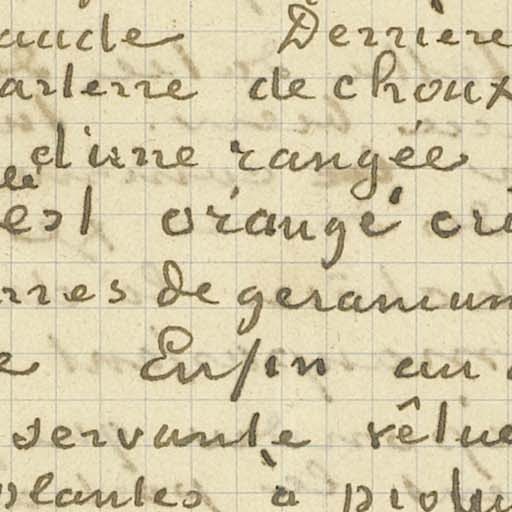 aude Derrière
arterre de choux
d'une rangée
est orangé cri
rres de geranium
e Enfin au
servante vêtue
plantes à profu